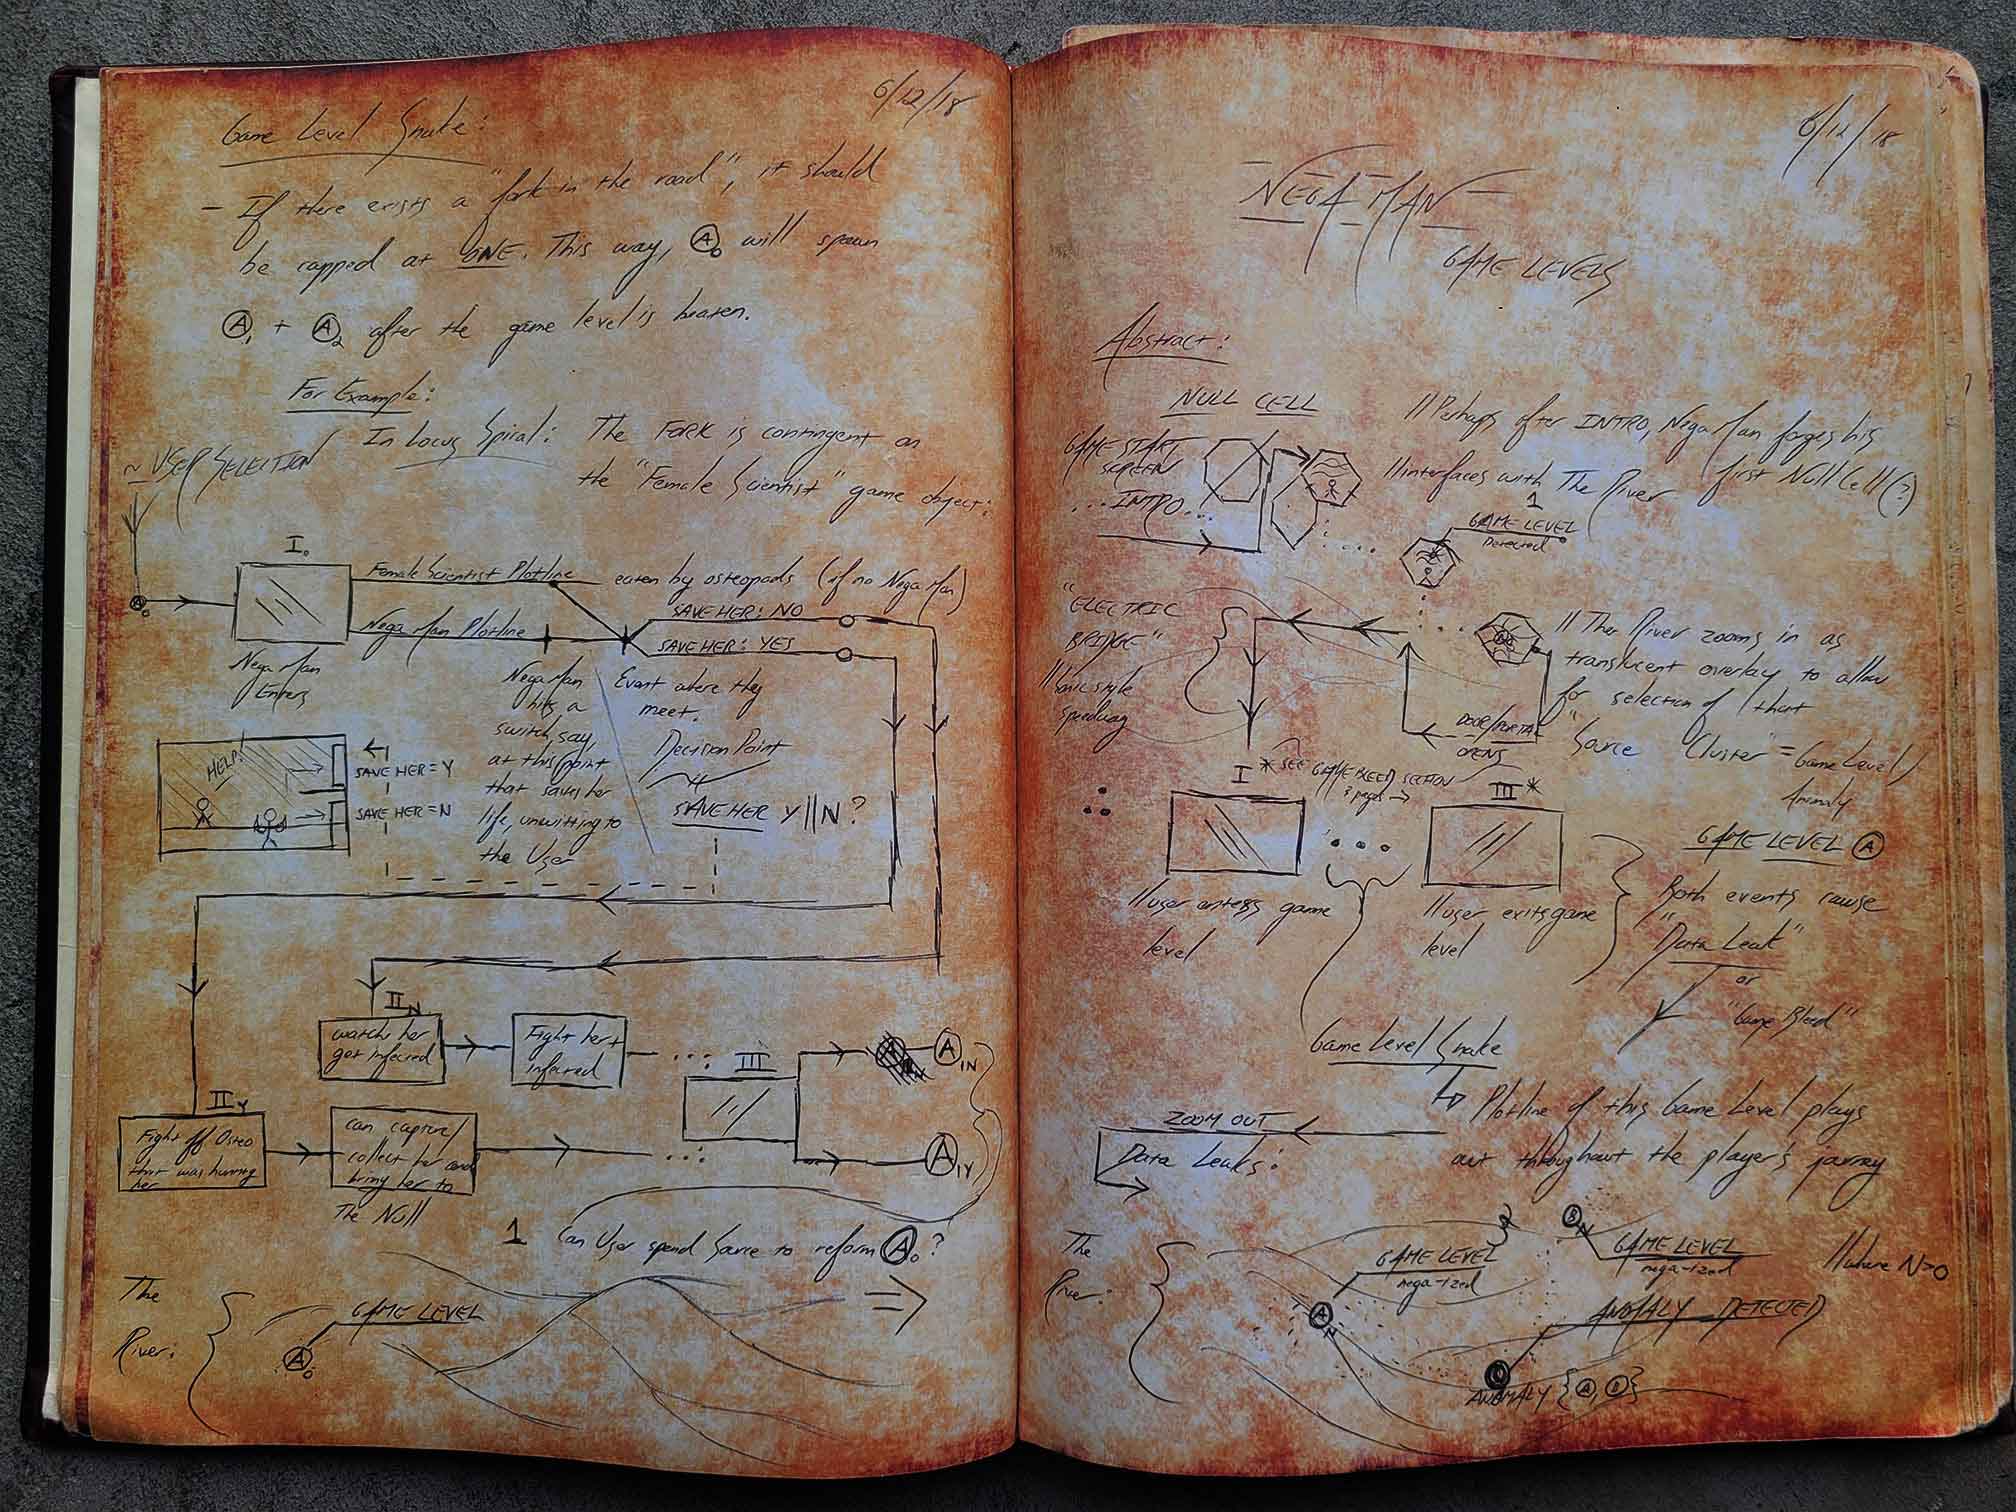 6/12/18
Game Level Snake:
- If there exists a "fork in the road", it should
be capped at ONE. This way, A0 will spawn
A1 + A2 after the game level is beaten.
For Example:
~ USER SELECTION
In Locus Spiral: The FORK is contingent on
the "Female Scientist" game object:
A0
I0
Female Scientist Plotline
eaten by osteopods (if no Nega Man)
SAVE HER: NO
Nega Man Plotline
SAVE HER: YES
Nega Man
Enters
Nega Man
hits a
switch, say,
at this point
that saves her
life, unwitting to
the User
Event where they
meet.
Decision Point
SAVE HER Y || N?
HELP!
SAVE HER = Y
SAVE HER = N
IIN
watch her
get infected
Fight her +
infected
...
III
A1N
IIY
Fight off Osteo
that was hunting
her
can capture/
collect her and
bring her to
The Null
...
A1Y
1 Can User spend Source to reform A0?
The
River:
GAME LEVEL
A0
6/12/18
NEGA MAN
GAME LEVELS
Abstract:
NULL CELL
GAME START
SCREEN
...INTRO...
// Perhaps after INTRO, Nega Man forges his
first Null Cell (?)
// interfaces with The River
1
GAME LEVEL
Detected
"ELECTRIC
BRIDGE"
// sonic style
speedway
// The River zooms in as
translucent overlay to allow
for selection of that
"Source Cluster" = Game Level/
Anomaly
DOOR/PORTAL
OPENS
* SEE GAME BLEED SECTION
3 pages →
I
III*
...
// user enters game
level
// user exits game
level
GAME LEVEL A
Both events cause
"Data Leak"
or
"Game Bleed"
Game Level Snake
↳ Plotline of this Game Level plays
out throughout the player's
ZOOM OUT
Data Leaks:
The
River:
GAME LEVEL
nega-ized
AN
BN
GAME LEVEL
nega-ized
// where N>0
ANOMALY DETECTED
ANOMALY {A, B}